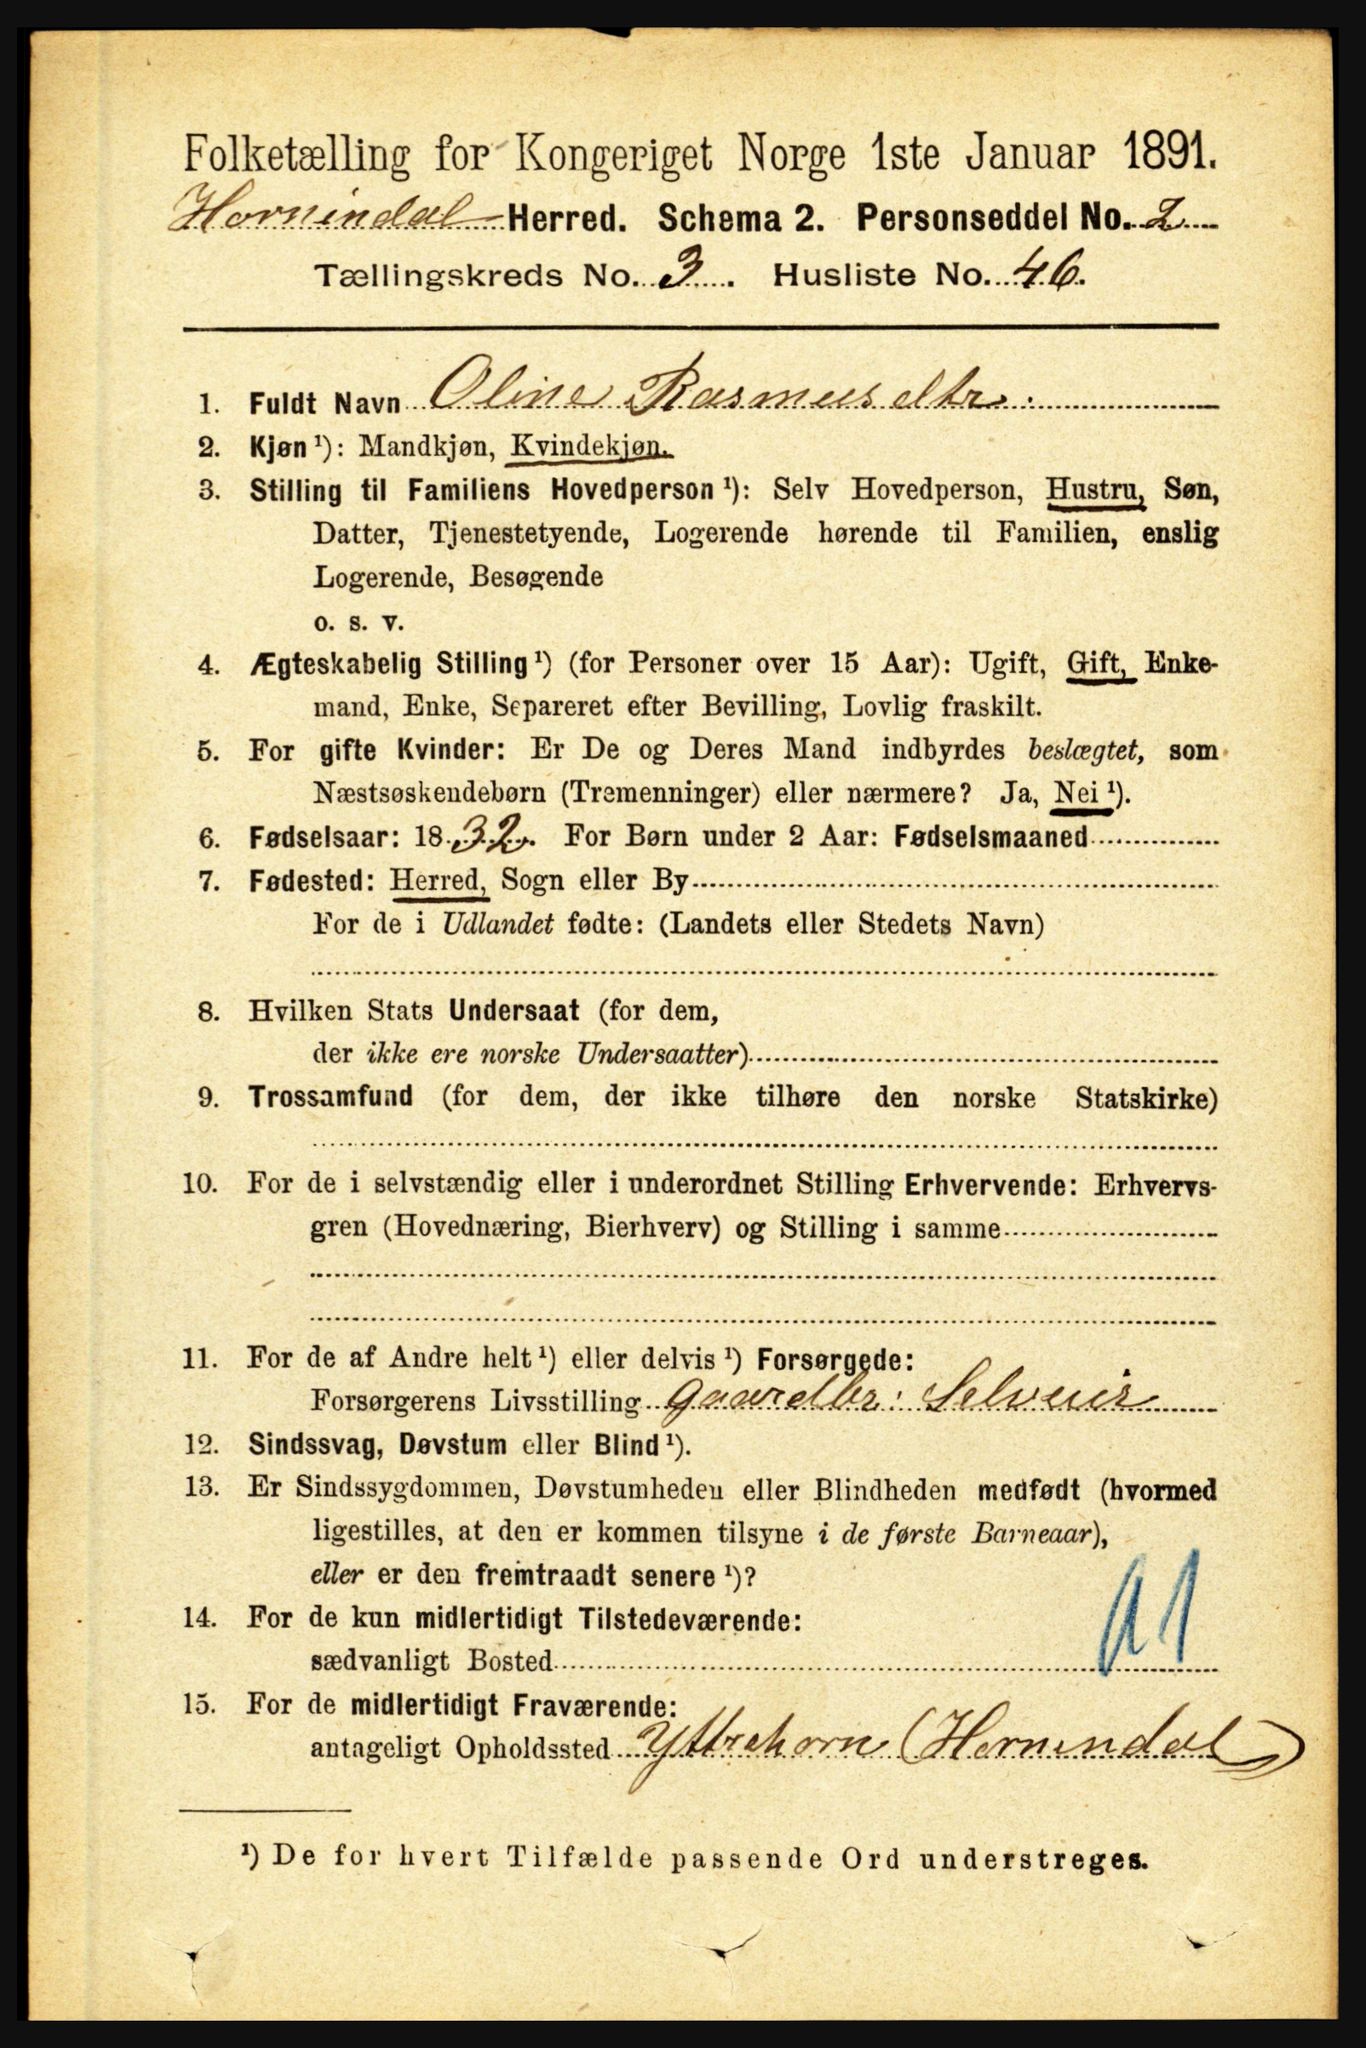 Folketælling for Kongeriget Norge 1ste Januar 1891.
Hornindal Herred. Schema 2. Personseddel No. 2
Tællingskreds No. 3. Husliste No. 46.
1. Fuldt Navn Oline Rasmusdtr.
2. Kjøn ¹): Mandkjøn, Kvindekjøn.
3. Stilling til Familiens Hovedperson ¹): Selv Hovedperson, Hustru, Søn,
Datter, Tjenestetyende, Logerende hørende til Familien, enslig
Logerende, Besøgende
o. s. v.
4. Ægteskabelig Stilling ¹) (for Personer over 15 Aar): Ugift, Gift, Enke-
mand, Enke, Separeret efter Bevilling, Lovlig fraskilt.
5. For gifte Kvinder: Er De og Deres Mand indbyrdes beslægtet, som
Næstsøskendebørn (Tremenninger) eller nærmere? Ja, Nei ¹).
6. Fødselsaar: 1832. For Børn under 2 Aar: Fødselsmaaned
7. Fødested: Herred, Sogn eller By
For de i Udlandet fødte: (Landets eller Stedets Navn)
8. Hvilken Stats Undersaat (for dem,
der ikke ere norske Undersaatter)
9. Trossamfund (for dem, der ikke tilhøre den norske Statskirke)
10. For de i selvstændig eller i underordnet Stilling Erhvervende: Erhvervs-
gren (Hovednæring, Bierhverv) og Stilling i samme
11. For de af Andre helt ¹) eller delvis ¹) Forsørgede:
Forsørgerens Livsstilling Gaardbr: Selveier
12. Sindssvag, Døvstum eller Blind ¹).
13. Er Sindssygdommen, Døvstumheden eller Blindheden medfødt (hvormed
ligestilles, at den er kommen tilsyne i de første Barneaar),
eller er den fremtraadt senere ¹)?
14. For de kun midlertidigt Tilstedeværende:
sædvanligt Bosted
15. For de midlertidigt Fraværende:
antageligt Opholdssted Yttrehorn (Hornindal)
¹) De for hvert Tilfælde passende Ord understreges.